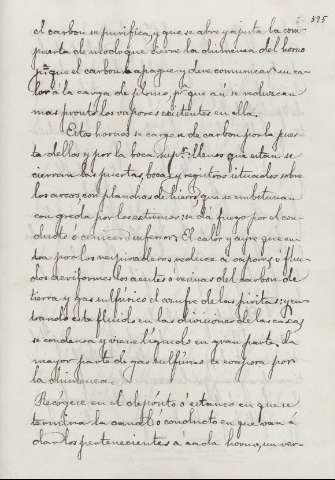 395
el carbon se purifica, y que se abre y ajusta la com-
puerta de modo que cierre la chimenea del horno
pª que el carbon se apague y deve comunicar su ca-
lor á la carga de plomo, pª que aú se reduzcan
mas pronto los vapores existentes en ella.
Estos hornos se cargan de carbon por la puer-
ta dellos y por la boca supr: llenos que estan se
cierran las puertas, bocas y registros situados sobre
los arcos, con planchas de hierro, que se embetunan
con greda por los extremos: se da fuego por el con-
ducto ó inferior. El calor y ayre que en-
tra por los respiraderos reduce á vapores ó flui-
dos aeriformes los aceites ó resinas del carbon de
tierra y gas sulfúrico el azufre de las piritas: y en-
trando este fluido en las chimeneas de las casas
se condensa y viene líquido en gran parte. La
mayor parte de gas sulfúreo se evapora por
la chimenea.
Recógese en el depósito ó estanco en que se
termina la canal ó conducto en que van á
dar los pertenecientes á cada horno, un ver-